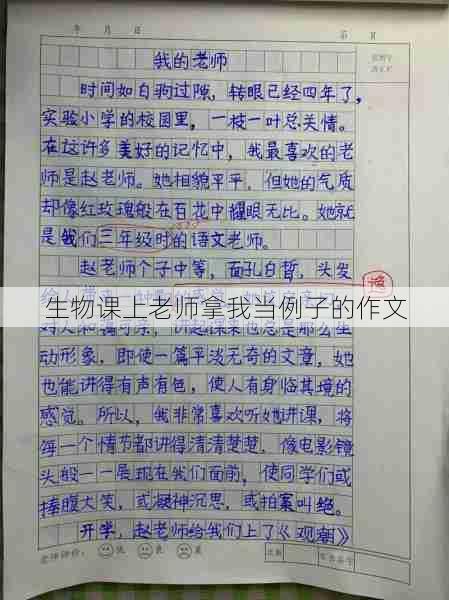 年 月 日 第 页
我的老师
时间如白驹过隙，转眼已经四年了，
实验小学的校园里，一枝一叶总关情。
在这许多美好的记忆中，我最喜欢的老
师是赵老师。她相貌平平，但她的气质
却像红玫瑰般在百花中耀眼无比。她就
是我们三年级时的语文老师。
赵老师个子中等，面孔白皙，头发
生物课上老师拿我当例子的作文
动形象，即使一篇平淡无奇的文章，她
也能讲得有声有色，使人有身临其境的
感觉。所以，我非常喜欢听她讲课，将
每一个情节都讲得清清楚楚，像电影镜
头般一一展现在我们面前，使同学们或
捧腹大笑，或凝神沉思，或拍案叫绝。
开学，赵老师给我们上了《观潮》